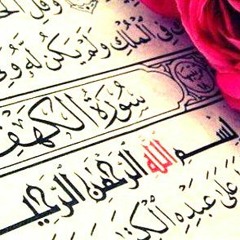 وَقُلِ
فِي الْمُلْكِ وَلَمْ يَكُن لَّهُ وَلِيٌّ
سُورَةُ الْكَهْفِ
بِسْمِ اللَّهِ الرَّحْمَٰنِ الرَّحِيمِ
عَلَىٰ عَبْدِهِ